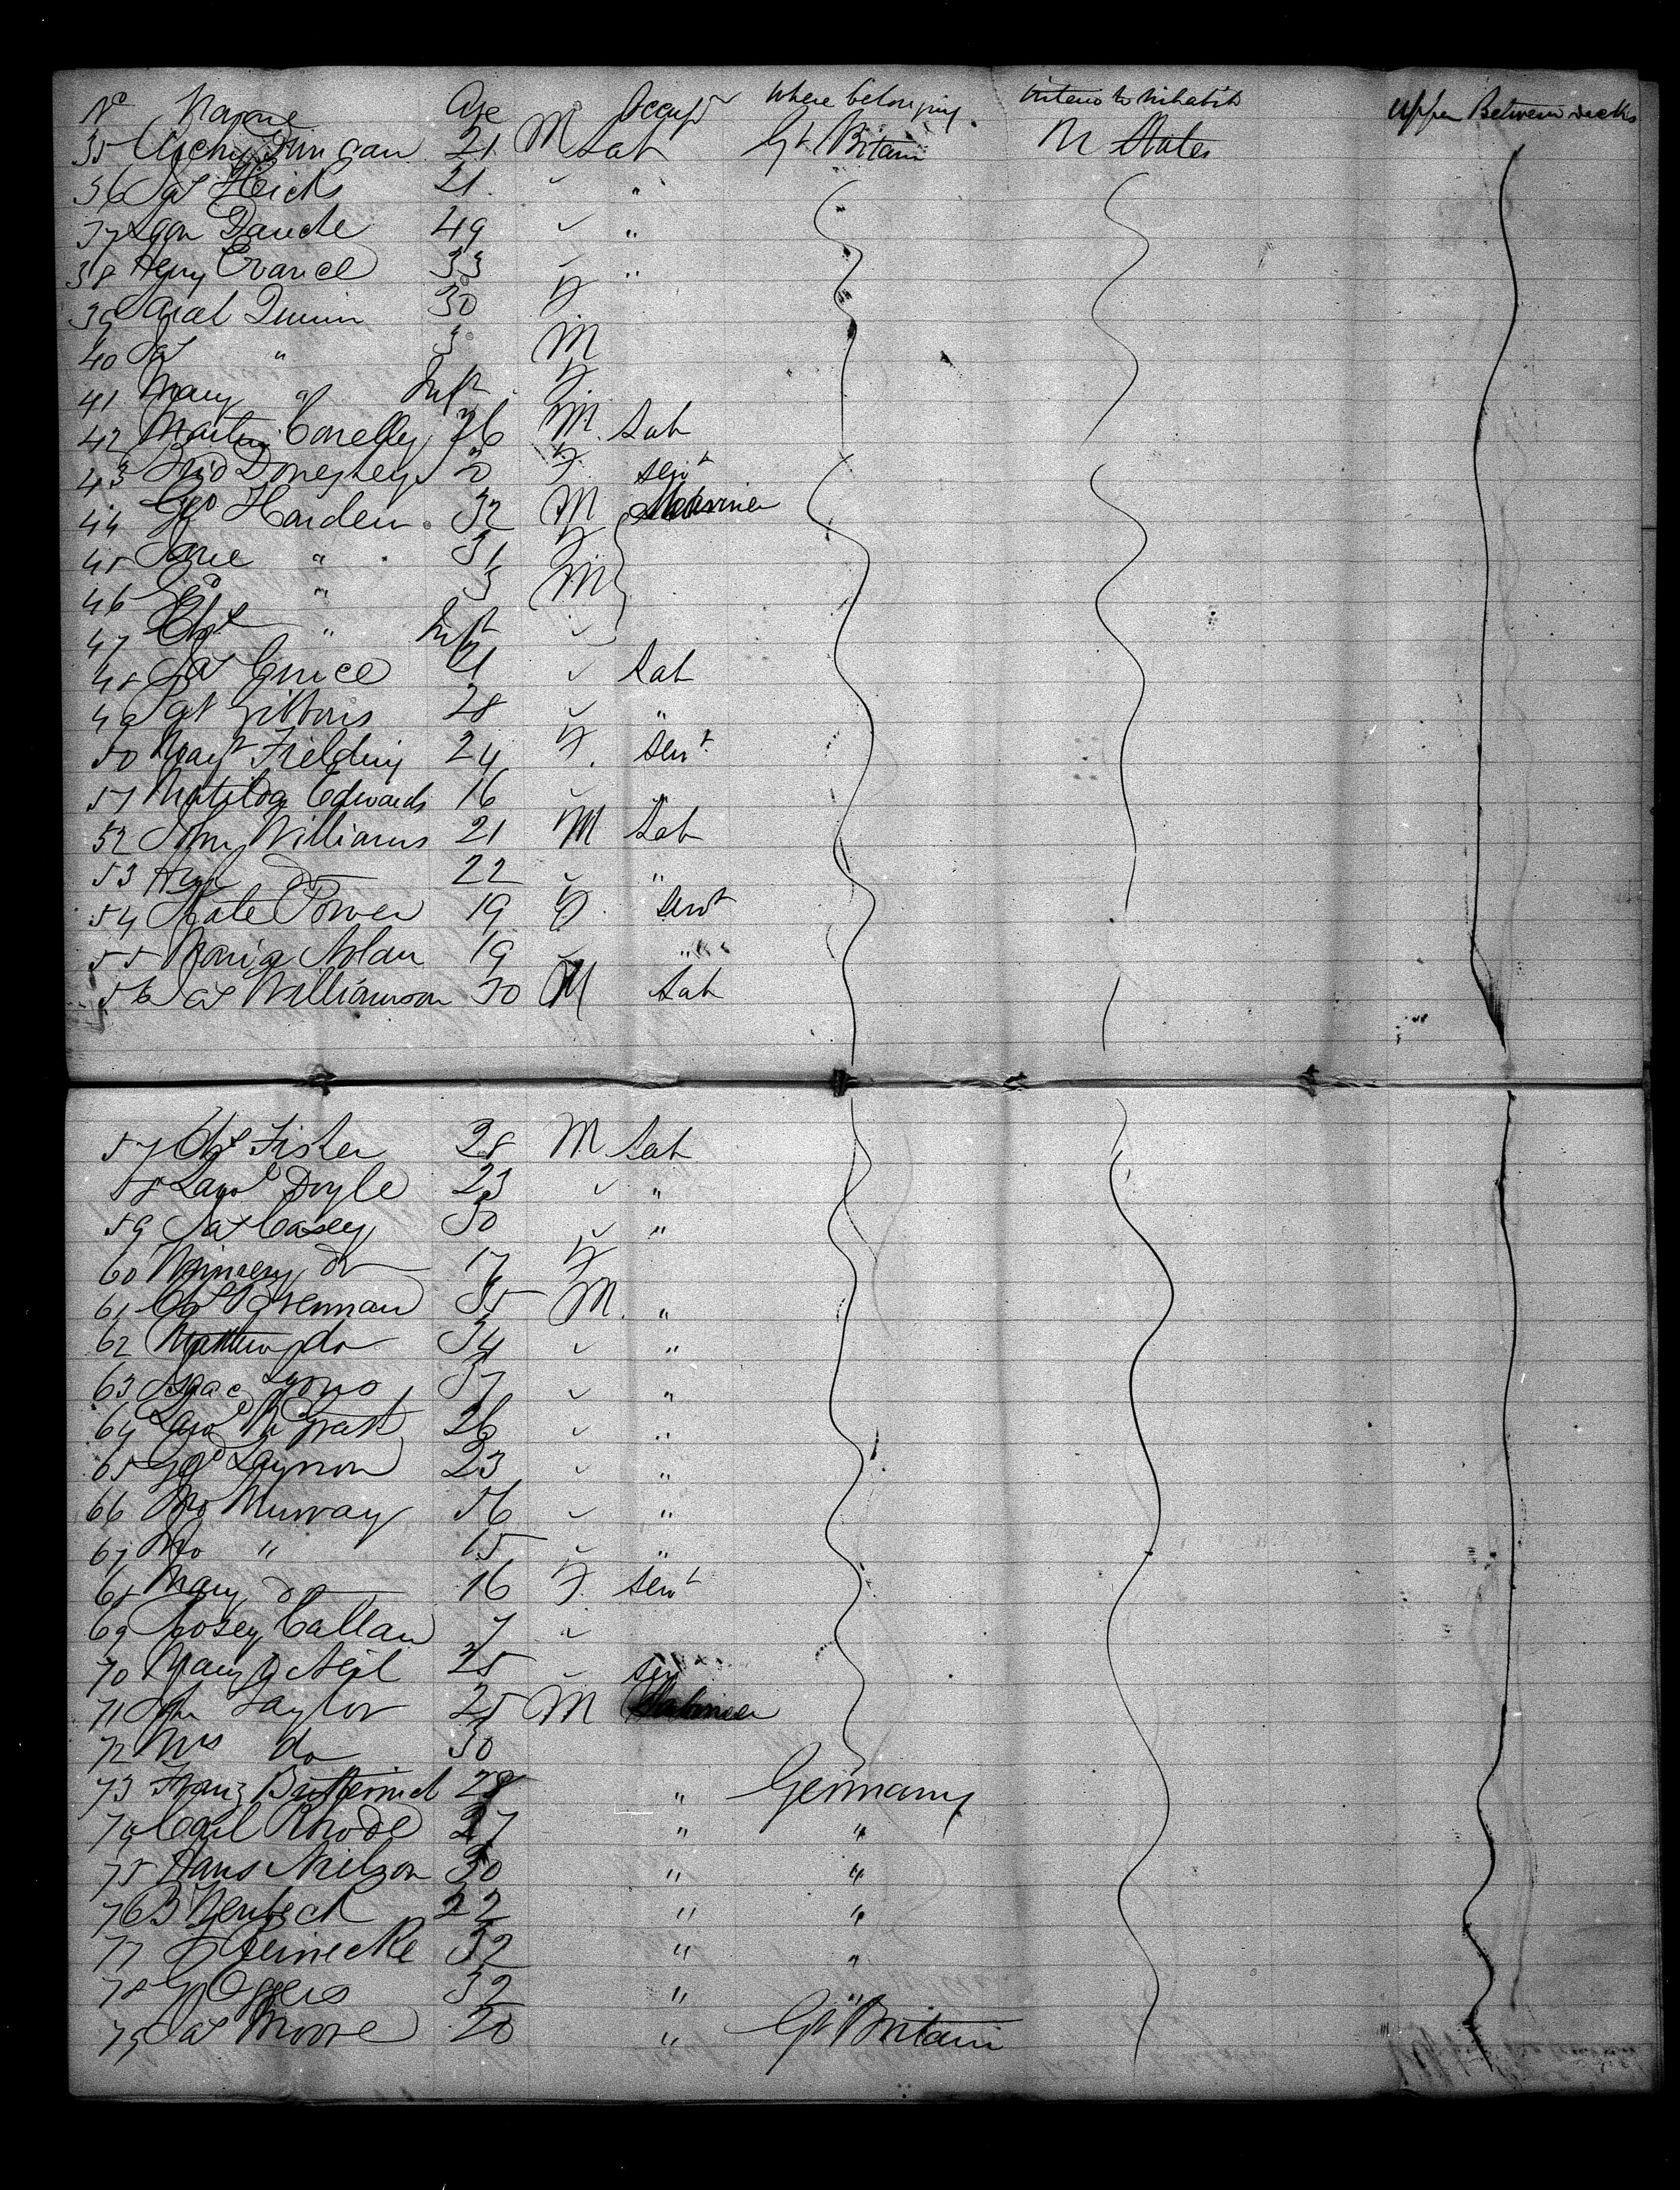 No Name Age Occupn Where belonging Intend to inhabit Upper Between decks
35 Archy Duncan 21 M Lab Gt Britain U States
36 Jas Hicks 21 "
37 49 "
38 Henry 33 "
39 Quinn 30 F
40 Jas " 3 M
41 Mary " Inft F
42 Martin Conelly 26 M Lab
43 Brid 20 F Servt
44 Geo Harden 32 M
45 Jane " 31 F
46 Geo " 3 M
47 Chs " Inft
48 Jas 21 Lab
49 Pat Gibbons 28 "
50 Margt Fielding 24 F Servt
51 Matilda Edwards 16 "
52 John Williams 21 M Lab
53 Hy do 22 "
54 Kate Power 19 F Servt
55 Maria Nolan 19 "
56 Jas Williamson 30 M Lab
57 Chs Fisher 28 M Lab
58 Lawe Doyle 23 "
59 Jas Casey 30 "
60 do 17 F
61 Chs Brennan 35 M "
62 Matthew do 34 "
63 Isaac Lyons 37 "
64 Lawe McGrath 26 "
65 Geo 23 "
66 Jno Murray 56 "
67 Jno " 15 "
68 Mary do 16 F Servt
69 Rosey Callan 7 "
70 Mary O Neil 25
71 Jno Taylor 25 M
72 Mrs do 30
73 Franz 28 " Germany
74 Carl Rhode 27 " "
75 Hans Nielson 30 " "
76 B 22 " "
77 32 " "
78 G Eggers 32 " "
79 Jas Moore 20 " Gt Britain